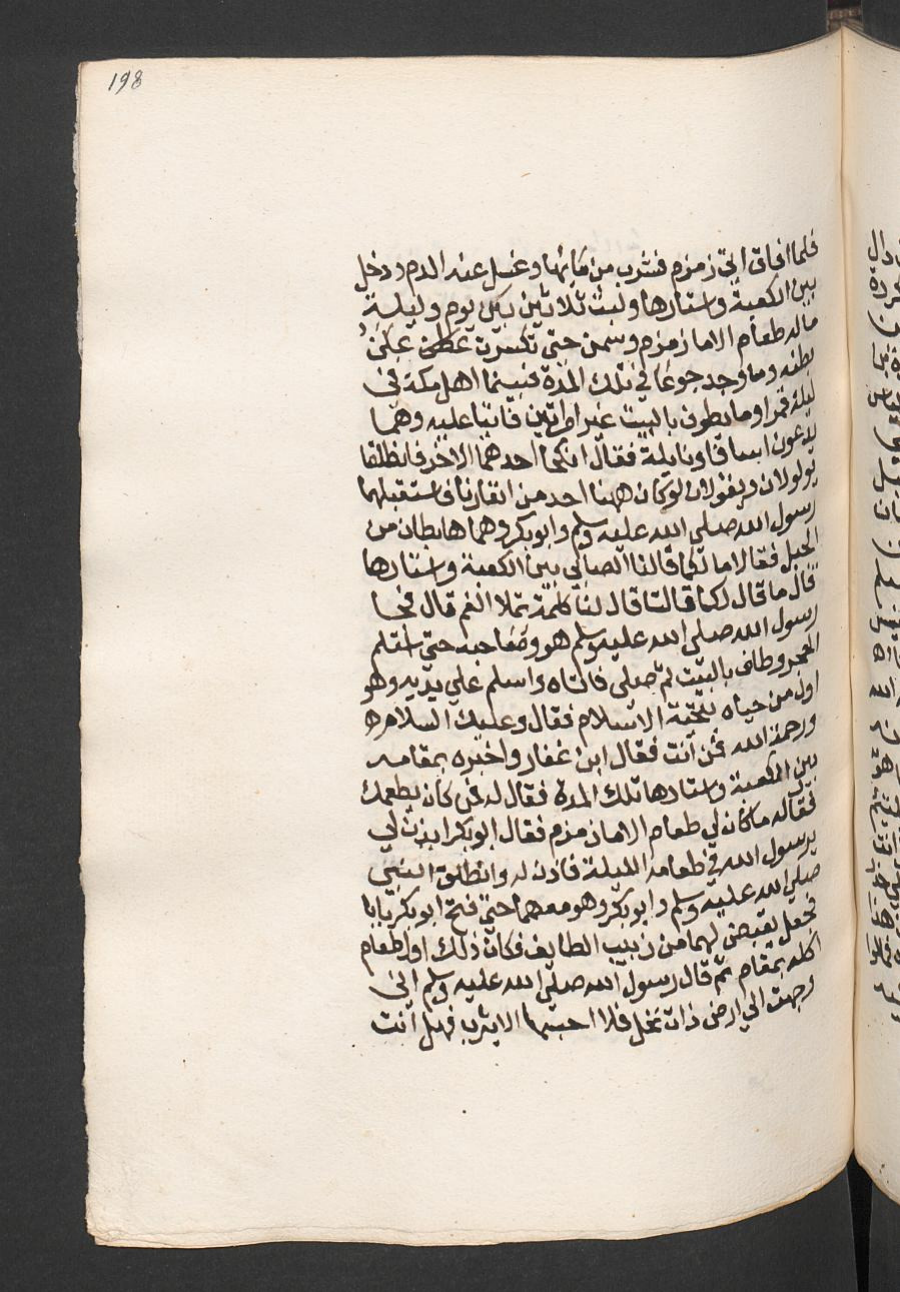 198
فلما افاق اتى زمزم فشرب من مايها وغسل عنه الدم ودخل
بين الكعبة واستارها ولبث ثلاثين بين يوم وليلة
ماله طعام الا ما زمزم وسمن حتى تكسرت عكن
بطنه وما وجد جوعا في تلك المدة فبينما اهل مكة في
ليلة قمرا وما يطوف بالبيت غير امراتين فاتيا عليه وهما
يدعون اسافا ونايلة فقال انكحا احدهما الاخر فانطلقا
يولولان ويقولان لو كان ههنا احد من انفارنا فاستقبلهما
رسول الله صلى الله عليه وسلم وابو بكر وهما هابطان من
الجبل فقالا ما لكما قالتا الصابي بين الكعبة واستارها
قال ما قال لكما قالتا قال لنا كلمة تملا الفم قال فجا
رسول الله صلى الله عليه وسلم هو وصاحبه حتى استلم
الحجر وطاف بالبيت ثم صلى فاتاه واسلم علي يديه وهو
اول من حياه بتحية الاسلام فقال وعليك السلام
ورحمة الله ممن انت فقال ابن غفار واخبره بمقامه
بين الكعبة واستارها تلك المدة فقال له فمن كان يطعمك
فقال له ما كان لي طعام الا ما زمزم فقال ابو بكر ايذن لي
يرسول الله في طعامه الليلة فاذن له وانطلق النبي
صلى الله عليه وسلم وابو بكر وهو معهما حتى فتح ابو بكر بابا
فجعل يقبض لهما من زبيب الطايف فكان ذلك اول طعام
اكله بمقام ثم قال رسول الله صلى الله عليه وسلم اني
وجهت الي ارض ذات نخل فلا احسبها الا يثرب فهل انت